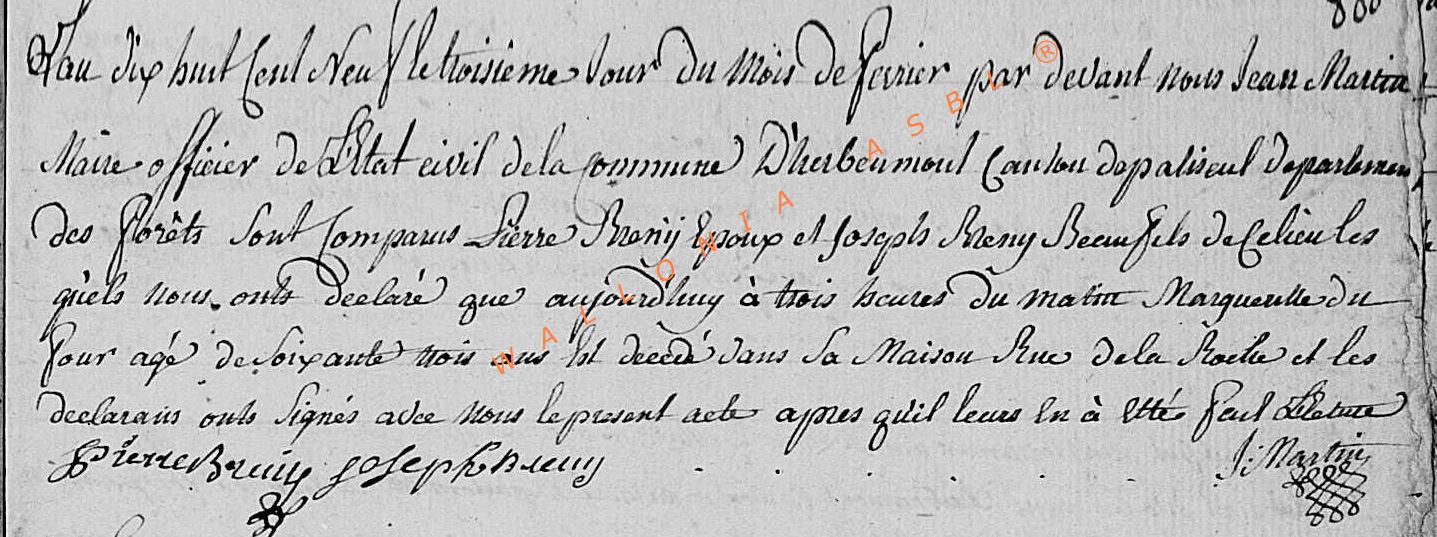 L'an dix huit Cent Neuf le troisieme Jour du Mois de fevrier par devant nous Jean Martin
Maire officier de L'Etat civil de la Commune D'herbeumont Canton de paliseul Departemen
des forêts sont Comparus Pierre Breny Epoux et Joseph Breny Beaufils de Celieu les
quels nous onts declaré que aujourd'huy à trois heures du matin Margueritte du
four agé de soixante trois ans Est decedé dans sa Maison Rue de la Roche et les
declarans onts signés avec nous le present acte apres qu'il leurs En à Etté fait Lecture
Pierre Breny Joseph Breny J: Martin
WALLONIA ASBL ®